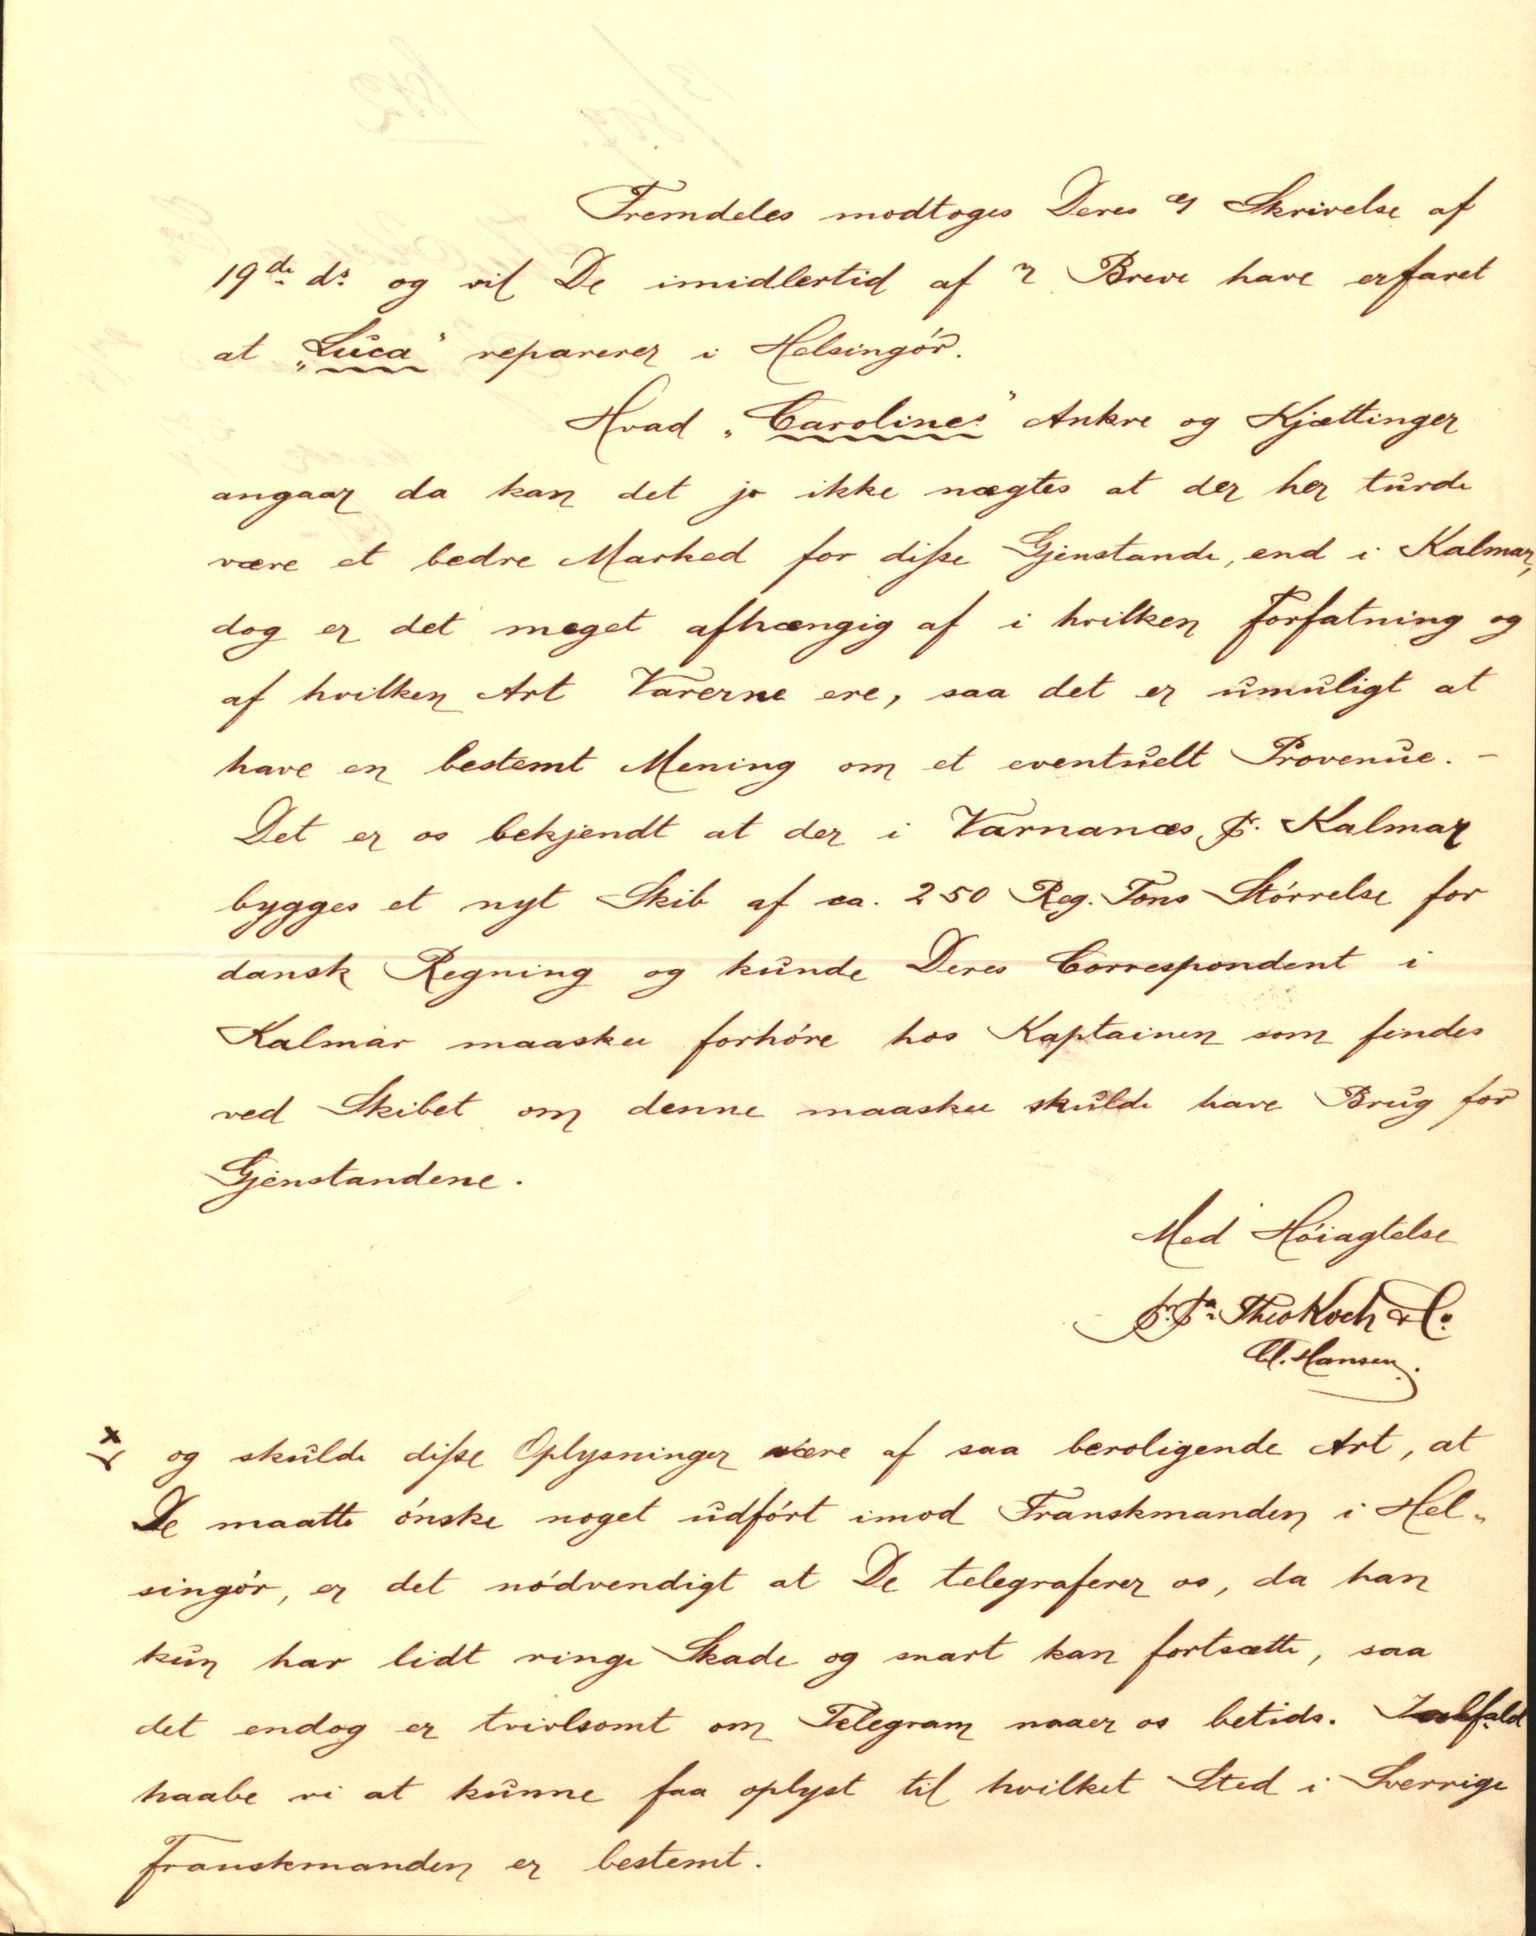 Fremdeles modtoges Deres Æ Skrivelse af
19de ds og vil De imidlertid af n Breve have erfaret
at „Luca" reparerer i Helsingör.
Hvad „Carolines" Ankre og Kjættinger
angaar da kan det jo ikke nægtes at der her turde
være et bedre Marked for disse Gjenstande, end i Kalmar,
dog er det meget afhængig af i hvilken Forfatning og
af hvilken Art Varerne ere, saa det er umuligt at
have en bestemt Mening om et eventuelt Provenue. –
Det er os bekjendt at der i Varnanæs pr. Kalmar
bygges et nyt Skib af ca. 250 Reg. Tons Störrelse for
dansk Regning og kunde Deres Correspondent i
Kalmar maaskee forhöre hos Kaptainen som findes
ved Skibet om denne maaskee skulde have Brug for
Gjenstandene.
Med Höiagtelse
pr. pa. Theo Koch & Co.
Hansen.
x og skulde disse Oplysninger være af saa beroligende Art, at
De maatte önske noget udfört imod Franskmanden i Hel„
singör, er det nödvendigt at De telegraferer os, da han
kun har lidt ringe Skade og snart kan fortsætte, saa
det endog er tvivlsomt om Telegram naaer os betids. Ialfald
haabe vi at kunne faa oplyst til hvilket Sted i Sverrige
Franskmanden er bestemt.